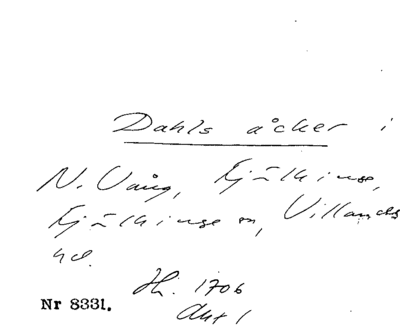 Dahls åcker i
N. Vång, Fjälkinge,
Fjälkinge sn, Villands
hd.
Hi. 1706
Akt 1
Nr 8331.